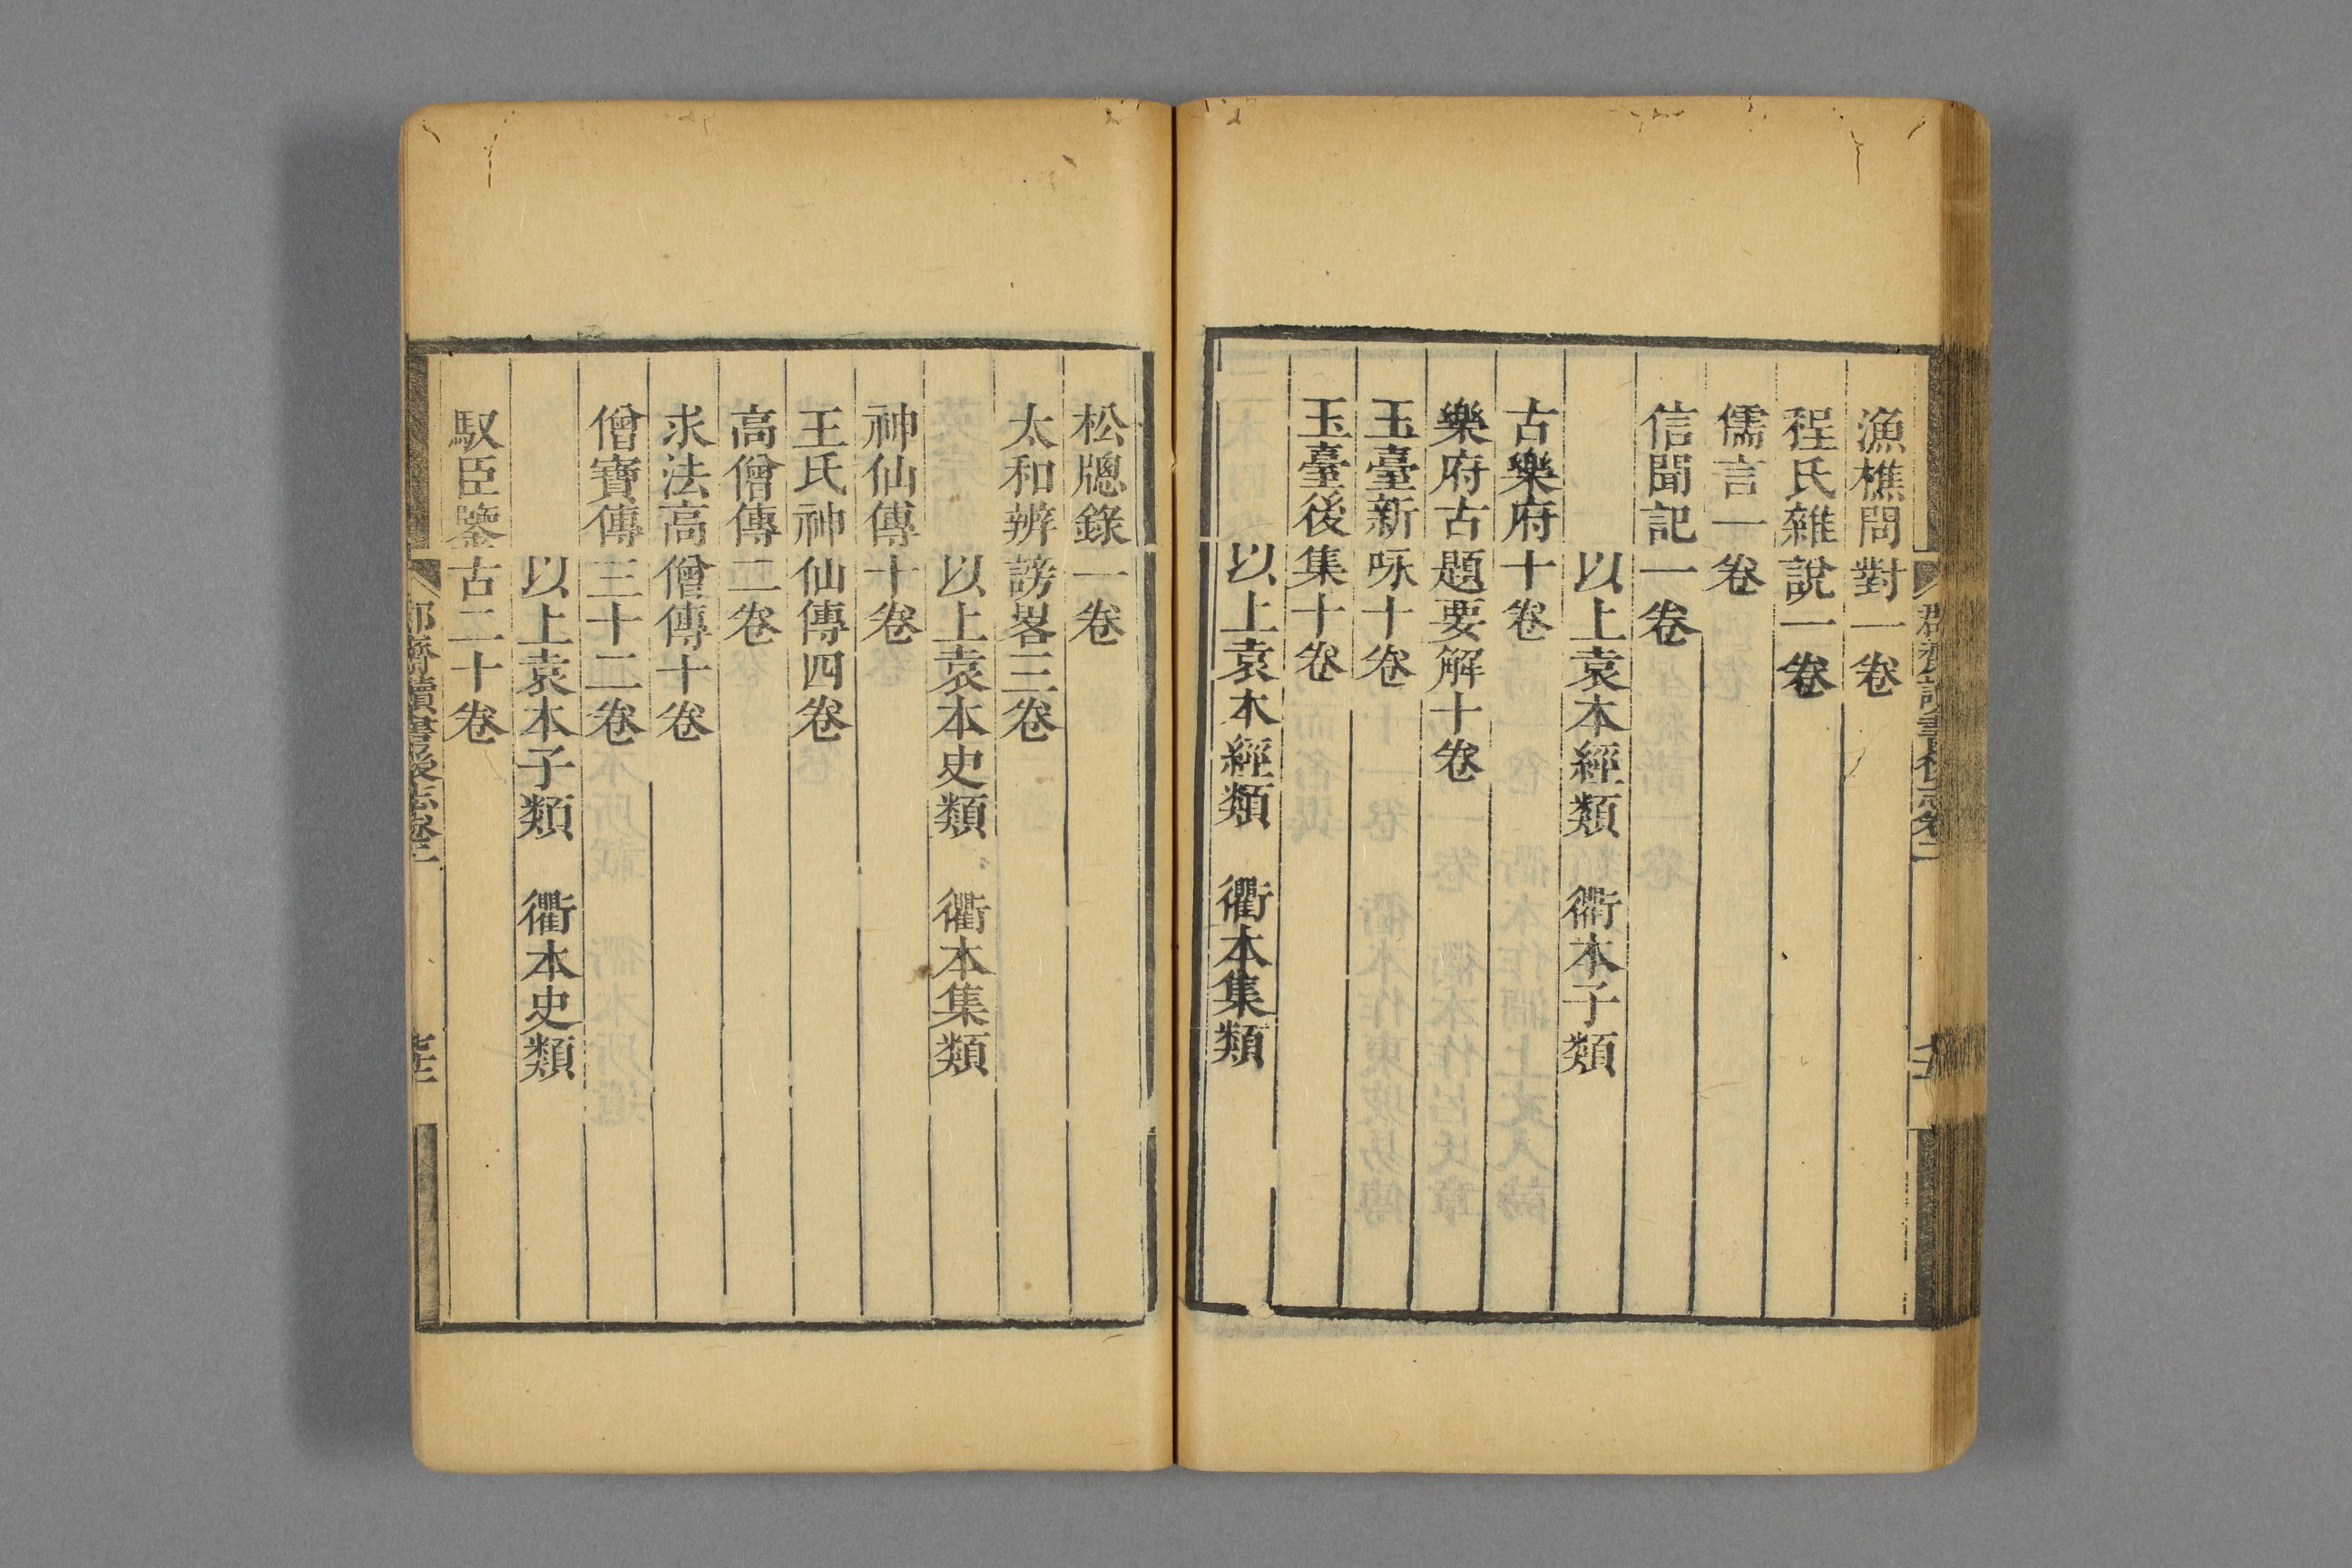 漁樵問對一卷
程氏雜說一卷
儒言一卷
信聞記一卷
以上袁本經類　衢本子類
古樂府十卷
樂府古題要解十卷
玉臺新咏十卷
玉臺後集十卷
以上袁本經類　衢本集類
松牕錄一卷
太和辨謗畧三卷
以上袁本史類　衢本集類
神仙傳十卷
王氏神仙傳四卷
高僧傳二卷
求法高僧傳十卷
僧寶傳三十二卷
以上袁本子類　衢本史類
馭臣鑒古二十卷
郡齋讀書後志卷二